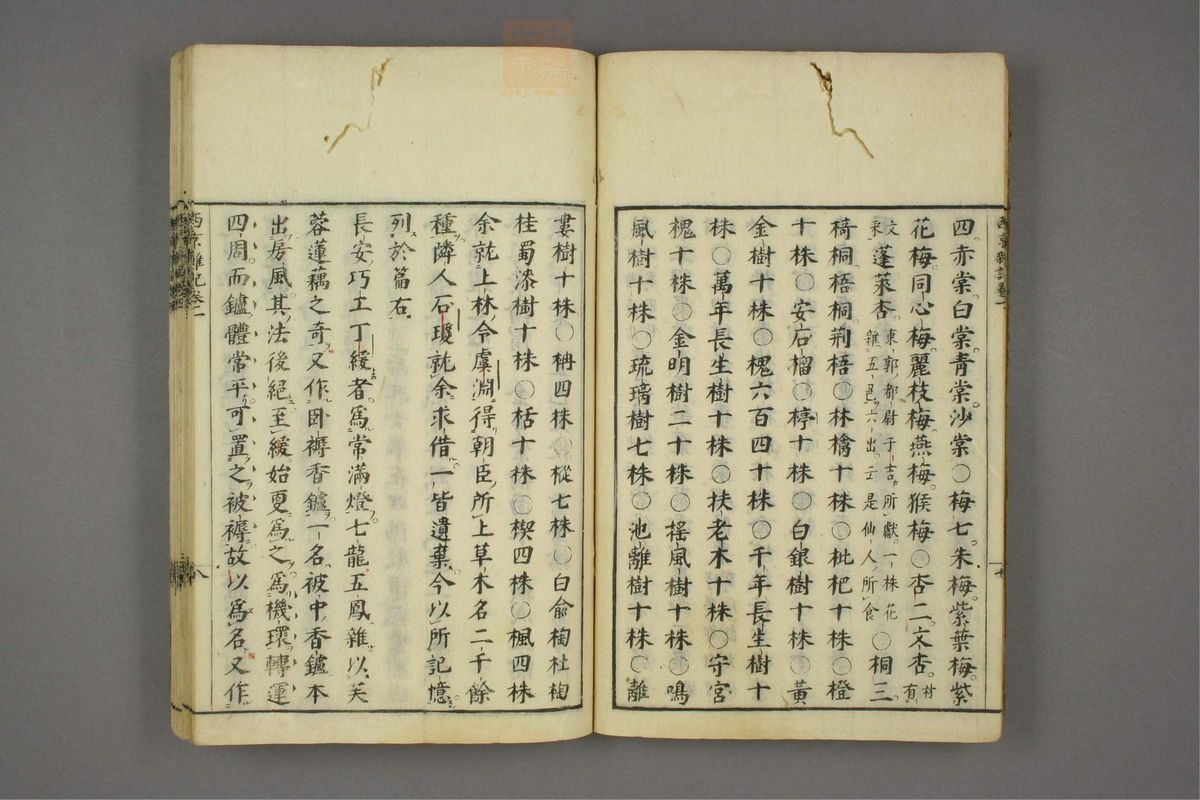 四赤棠白棠青棠沙棠〇梅七朱梅紫葉梅紫
花梅同心梅麗枝梅燕梅猴梅〇杏二文杏材有
文采蓬萊杏東郭都尉于吉所獻一株花雜五色六出云是仙人所食〇桐三
椅桐梧桐荊梧〇林檎十株〇枇杷十株〇橙
十株〇安石榴〇楟十株〇白銀樹十株〇黃
金樹十株〇槐六百四十株〇千年長生樹十
株〇萬年長生樹十株〇扶老木十株〇守宮
槐十株〇金明樹二十株〇搖風樹十株〇鳴
風樹十株〇琉璃樹七株〇池離樹十株〇離
婁樹十株〇柟四株〇樅七株〇白俞梋杜梋
桂蜀漆樹十株〇栝十株〇楔四株〇楓四株
余就上林令虞淵得朝臣所上草木名二千餘
種隣人石瓊就余求借一皆遺棄今以所記憶
列於篇右
長安巧工丁緩者爲常滿燈七龍五鳳雜以芙
蓉蓮藕之奇又作臥褥香鑪一名被中香鑪本
出房風其法後絕至緩始更爲之爲機環轉運
四周而鑪體常平可置之被褥故以爲名又作
西京雜記卷二
八